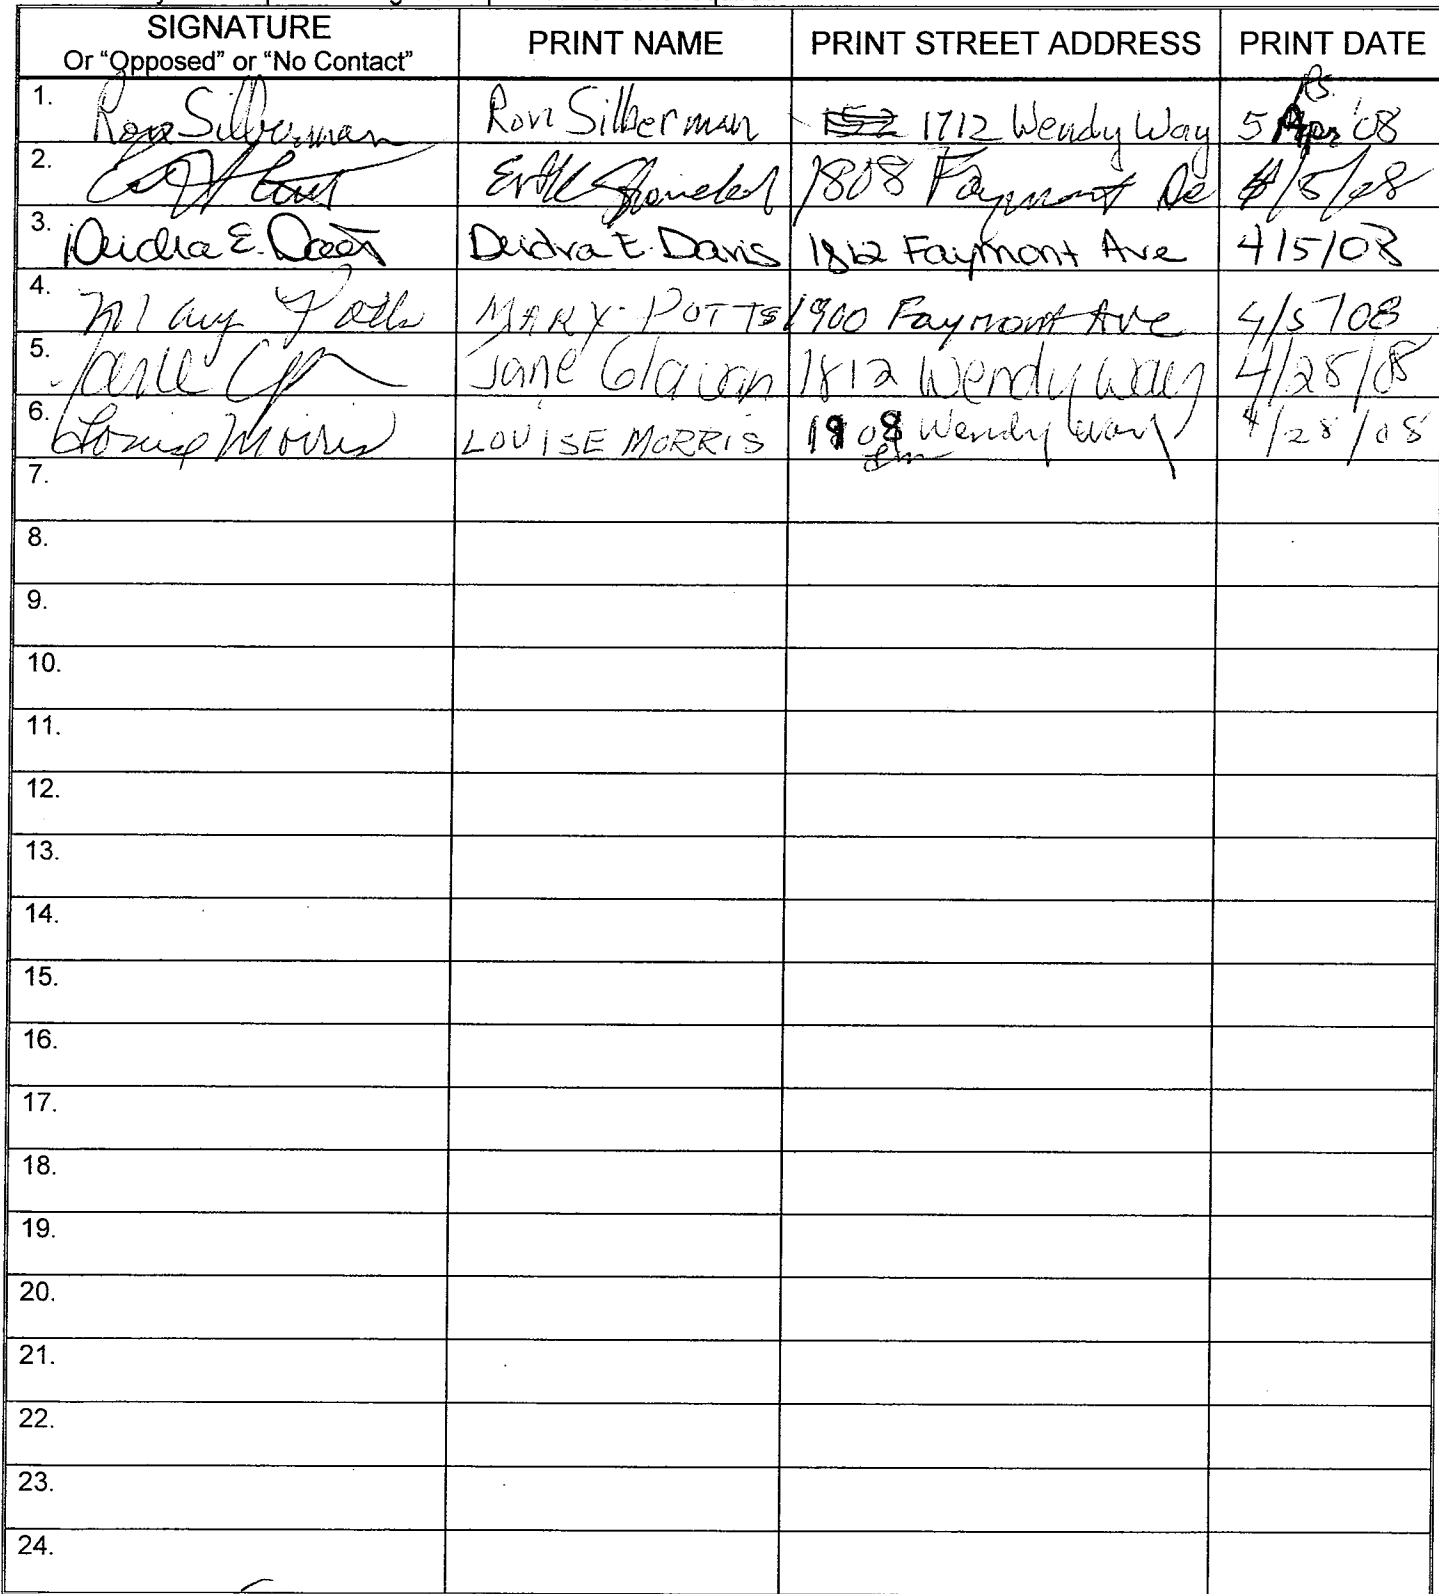 SIGNATURE PRINT NAME PRINT STREET ADDRESS PRINT DATE
Or "Opposed" or "No Contact"
RS
1. Ron Silberman Ron Silberman 1712 Wendy Way 5 Apr '08
2. 1808 Faymont 4/5/08
3. Deidra E. Davis Deidra E. Davis 1812 Faymont Ave 4/5/08
4. Mary Potts MARY POTTS 1900 Faymont Ave 4/5/08
5. Jane Jane 1812 Wendy Way 4/28/08
6. Louise Morris LOUISE MORRIS 1908 Wendy Way 4/28/08
lm
7.
8.
9.
10.
11.
12.
13.
14.
15.
16.
17.
18.
19.
20.
21.
22.
23.
24.